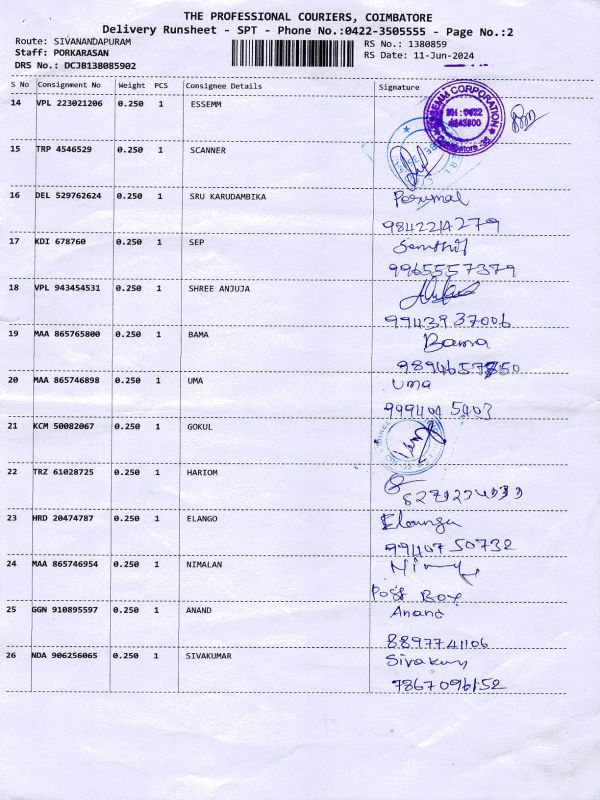 THE PROFESSIONAL COURIERS, COIMBATORE
Delivery Runsheet - SPT - Phone No.:0422-3505555 - Page No.:2
Route: SIVANANDAPURAM
Staff: PORKARASAN
DRS No.: DCJB138085902
RS No.: 1380859
RS Date: 11-Jun-2024
S No Consignment No Weight PCS Consignee Details Signature
14 VPL 223021206 0.250 1 ESSEMM
ESSEMM CORPORATION
PH : 0422
Coimbatore-35
15 TRP 4546529 0.250 1 SCANNER
16 DEL 529762624 0.250 1 SRU KARUDAMBIKA Perumal
9842214279
17 KDI 678760 0.250 1 SEP Senthil
9965557379
18 VPL 943454531 0.250 1 SHREE ANJUJA
9943937006
19 MAA 865765800 0.250 1 BAMA Bama
20 MAA 865746898 0.250 1 UMA Uma
21 KCM 50082067 0.250 1 GOKUL
22 TRZ 61028725 0.250 1 HARIOM
23 HRD 20474787 0.250 1 ELANGO Elango
9940750732
24 MAA 865746954 0.250 1 NIMALAN
Post Box
25 GGN 910895597 0.250 1 ANAND Anand
8897741106
26 NDA 906256065 0.250 1 SIVAKUMAR
7867096152